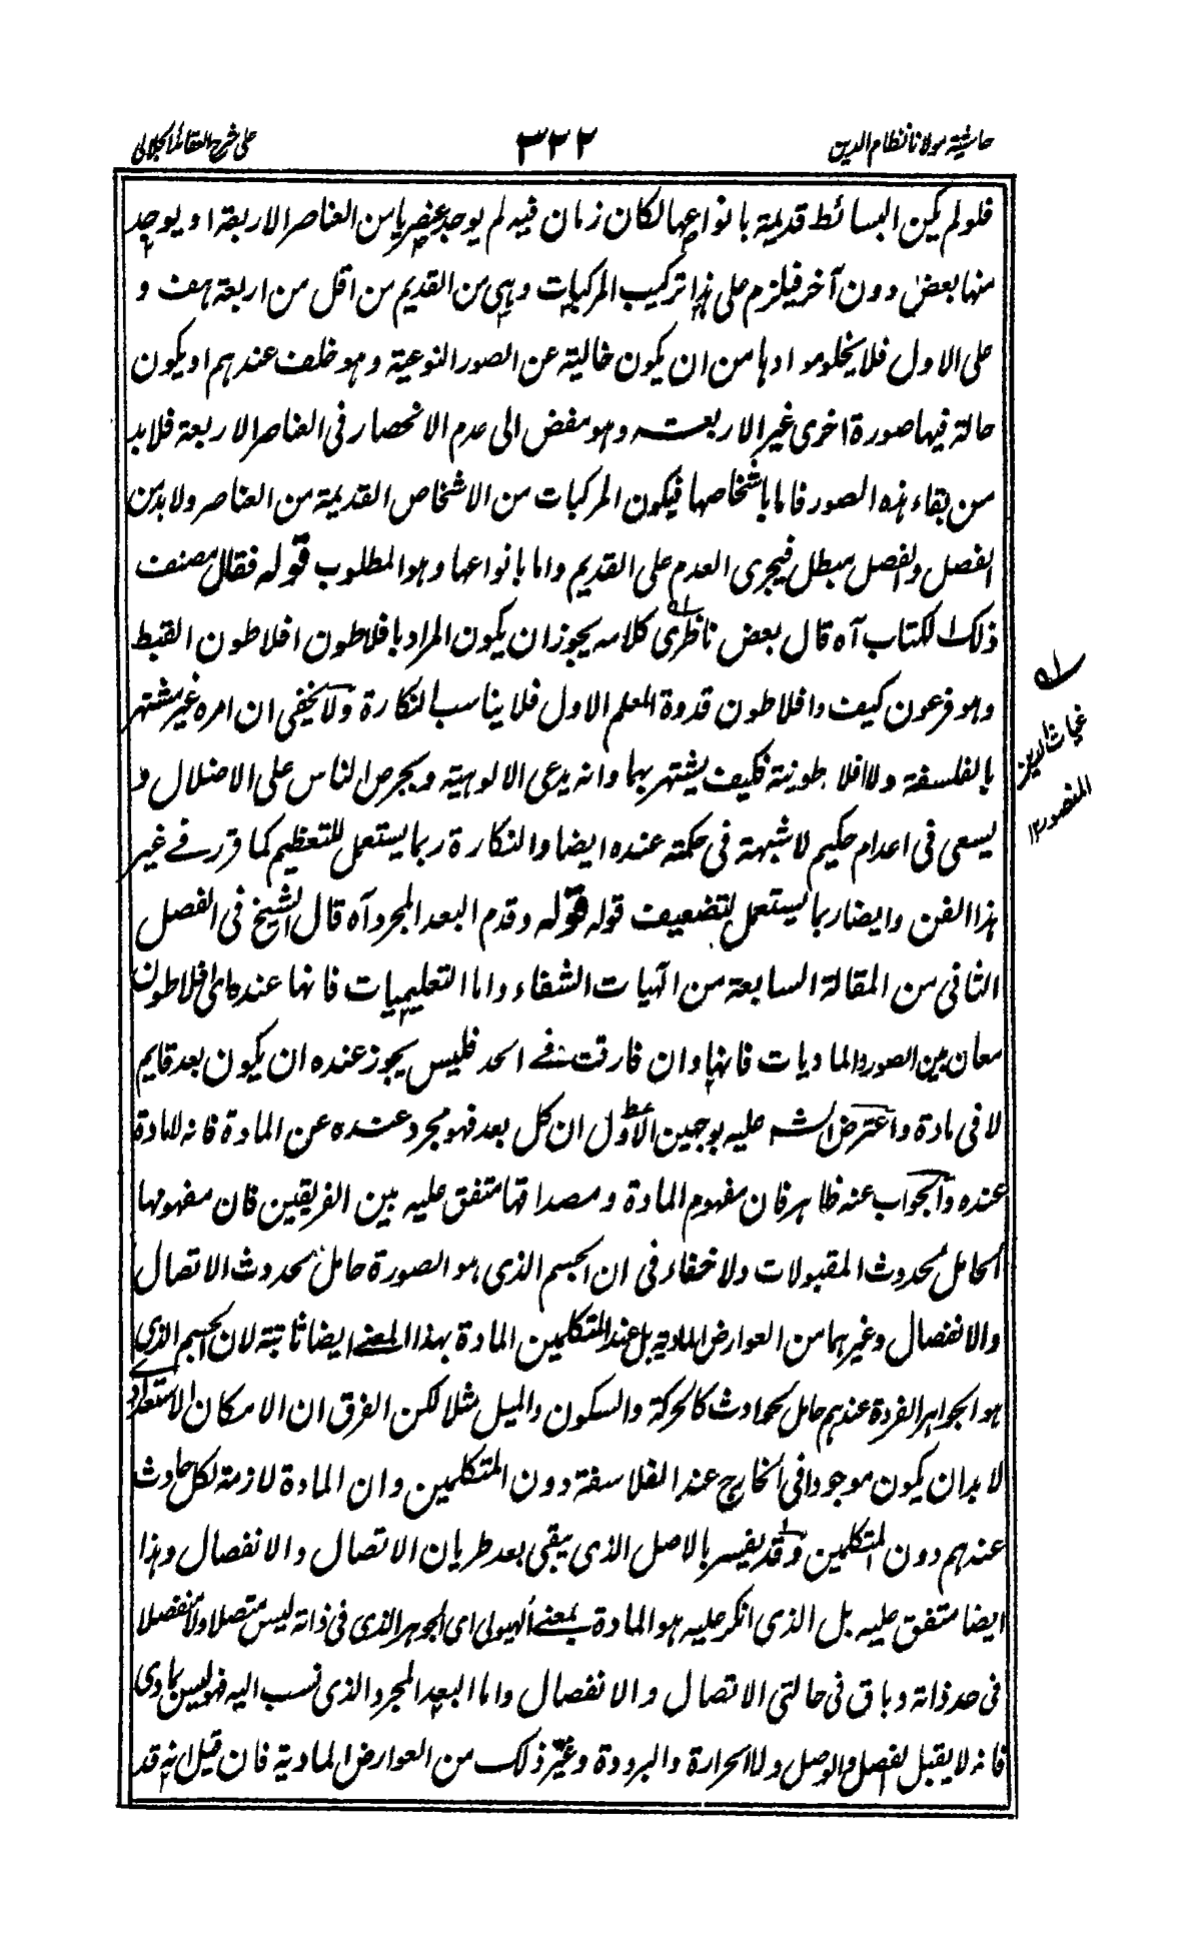 حاشية مولانا نظام الدين
٣٢٢
على شرح العقائد الجلالى
فلو لم يكن البسائط قديمة بانواعها لكان زمان فيه لم يوجد عنصر ما من العناصر الاربعة او يوجد
منها بعض دون آخر فيلزم على هذا تركيب المركبات وهى من القديم من اقل من اربعة هف و
على الاول فلا يخلو موادها من ان يكون خالية عن الصور النوعية وهو خلف عندهم او يكون
حالة فيها صورة اخرى غير الاربعة وهو مفض الى عدم الانحصار فى العناصر الاربعة فلا بد
من بقاء هذه الصور فاما باشخاصها فيكون المركبات من الاشخاص القديمة من العناصر ولا بد من
الفصل والفصل مبطل فيجرى العدم على القديم واما بانواعها وهو المطلوب قوله فقال مصنف
ذلك الكتاب آه قال بعض ناظرى كلامه يجوز ان يكون المراد بافلاطون افلاطون القبط
وهو فرعون كيف وافلاطون قدوة المعلم الاول فلا يناسب النكارة ولا يخفى ان امره غير مشتهر
بالفلسفة ولا افلاطونية فكيف يشتهر بهما وانه يدعى الالوهية ويحرص الناس على الاضلال و
يسعى فى اعدام حكيم لا شبهة فى حكمته عنده ايضا والنكارة ربما يستعمل للتعظيم كما قرر فى غير
هذا الفن وايضا ربما يستعمل لتضعيف قوله قوله وقدم البعد المجرد آه قال الشيخ فى الفصل
الثانى من المقالة السابعة من الٓهيات الشفاء واما التعليميات فانها عنده اى افلاطون
معان بين الصور والماديات فانها وان فارقت فى الحد فليس يجوز عنده ان يكون بعد قايم
لا فى مادة واعترض الش عليه بوجهين الاول ان كل بعد فهو مجرد عنده عن المادة فانه لا مادة
عنده والجواب عنه ظاهر فان مفهوم المادة ومصداقها متفق عليه بين الفريقين فان مفهومها
الحامل لحدوث المقبولات ولا خفاء فى ان الجسم الذى هو الصورة حامل لحدوث الاتصال
والانفصال وغيرهما من العوارض المادية بل عند المتكلمين المادة بهذا المعنى ايضا ثابتة لان الجسم الذى
هو الجواهر الفردة عندهم حامل لحوادث كالحركة والسكون والميل مثلا لكن الفرق ان الامكان الاستعدادى
لا بد ان يكون موجودا فى الخارج عند الفلاسفة دون المتكلمين وان المادة لازمة لكل حادث
عندهم دون المتكلمين وقد يفسر بالاصل الذى يبقى بعد طريان الاتصال والانفصال وهذا
ايضا متفق عليه بل الذى انكر عليه هو المادة بمعنى الهيولى اى الجوهر الذى فى ذاته ليس متصلا ولا منفصلا
فى حد ذاته وباق فى حالتى الاتصال والانفصال واما البعد المجرد الذى نسب اليه فهو ليس بمادى
فانه لا يقبل الفصل والوصل ولا الحرارة والبرودة وغير ذلك من العوارض المادية فان قيل انه قد
غياث الدين
المنصور ١٢